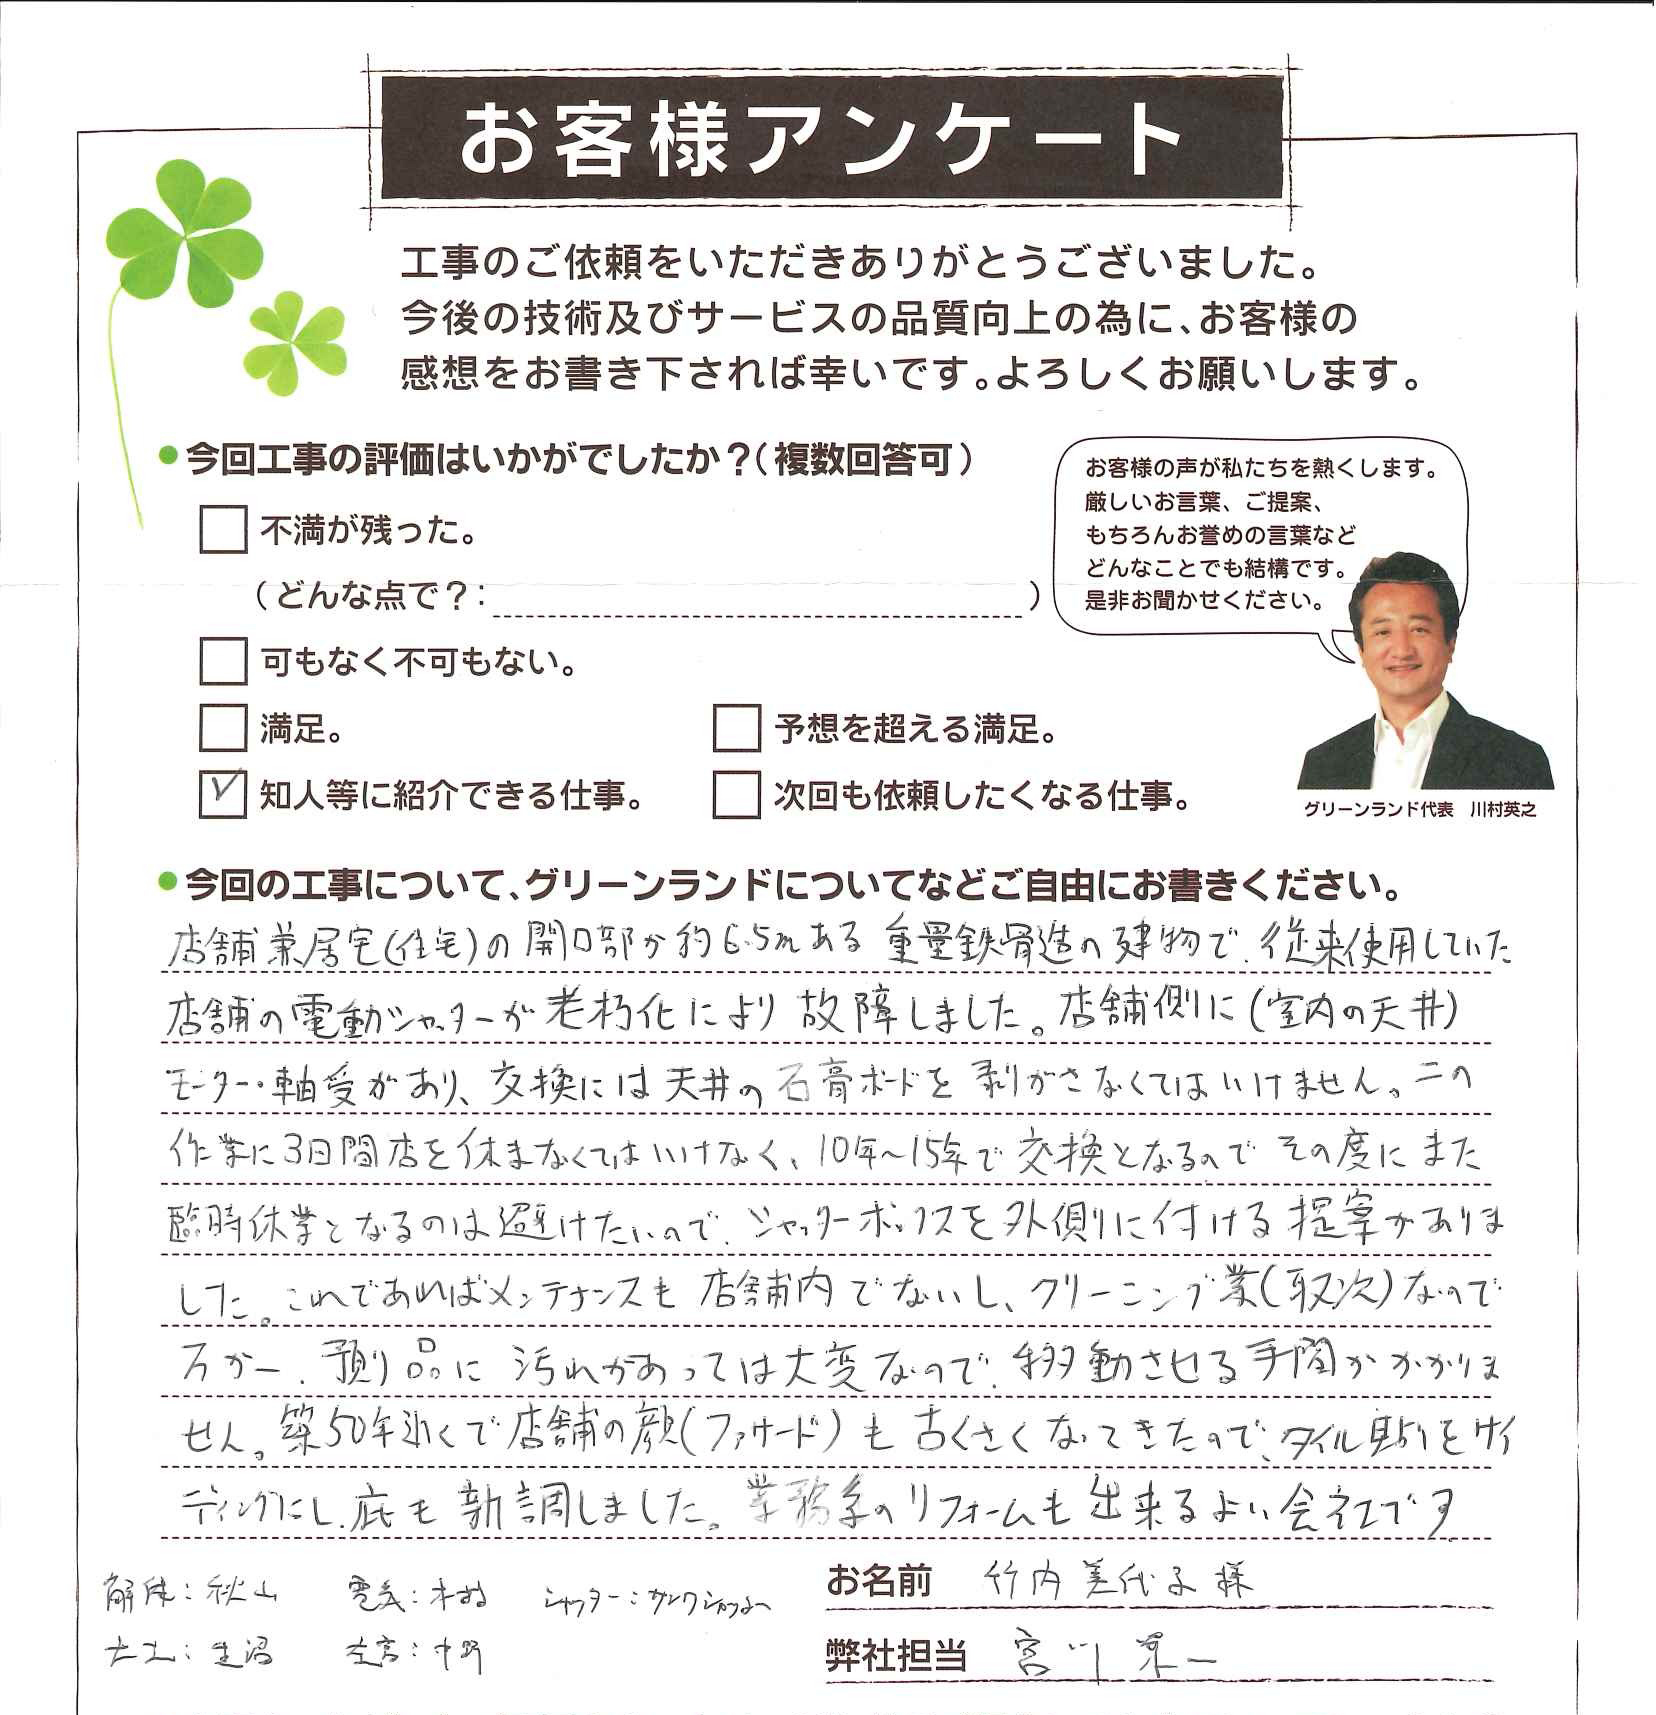 お客様アンケート
工事のご依頼をいただきありがとうございました。
今後の技術及びサービスの品質向上の為に、お客様の
感想をお書き下されば幸いです。よろしくお願いします。
今回工事の評価はいかがでしたか？(複数回答可)
不満が残った。
(どんな点で？: )
可もなく不可もない。
満足。
予想を超える満足。
知人等に紹介できる仕事。
次回も依頼したくなる仕事。
お客様の声が私たちを熱くします。
厳しいお言葉、ご提案、
もちろんお誉めの言葉など
どんなことでも結構です。
是非お聞かせください。
グリーンランド代表 川村英之
今回の工事について、グリーンランドについてなどご自由にお書きください。
店舗兼居宅(住宅)の開口部が約6.5mある重量鉄骨造の建物で、従来使用していた
店舗の電動シャッターが老朽化により故障しました。店舗側に(室内の天井)
モーター・軸受があり、交換には天井の石膏ボードを剥がさなくてはいけません。この
作業に3日間店を休まなくてはいけなく、10年〜15年で交換となるのでその度にまた
臨時休業となるのは避けたいので、シャッターボックスを外側に付ける提案がありま
した。これであればメンテナンスも店舗内でないし、クリーニング業(取次)なので
万が一、預り品に汚れがあっては大変なので、移動させる手間がかかりま
せん。築50年近くで店舗の顔(ファサード)も古くさくなってきたので、タイル貼りをサイ
ディングにし、庇も新調しました。業務系のリフォームも出来るよい会社です
解体：秋山 電気：木村 シャッター：サンワシャッター
大工：生沼 左官：中野
お名前 竹内美代子様
弊社担当 宮川 栄一